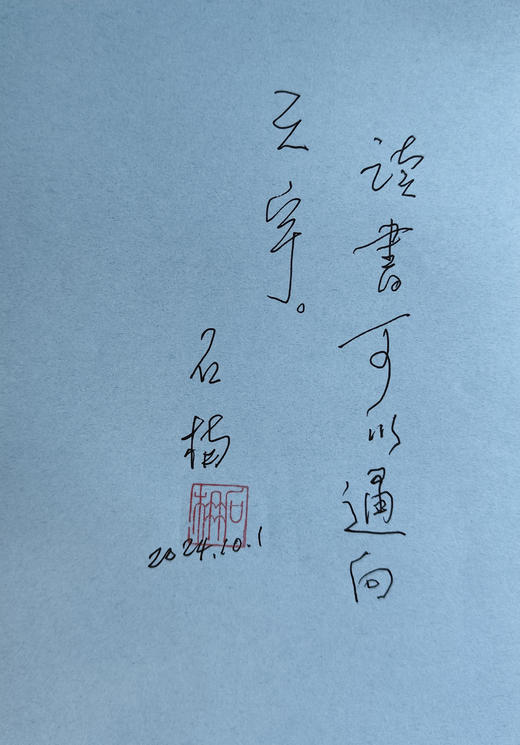 读書可以通向
天宇。
石楠
石楠
2024.10.1